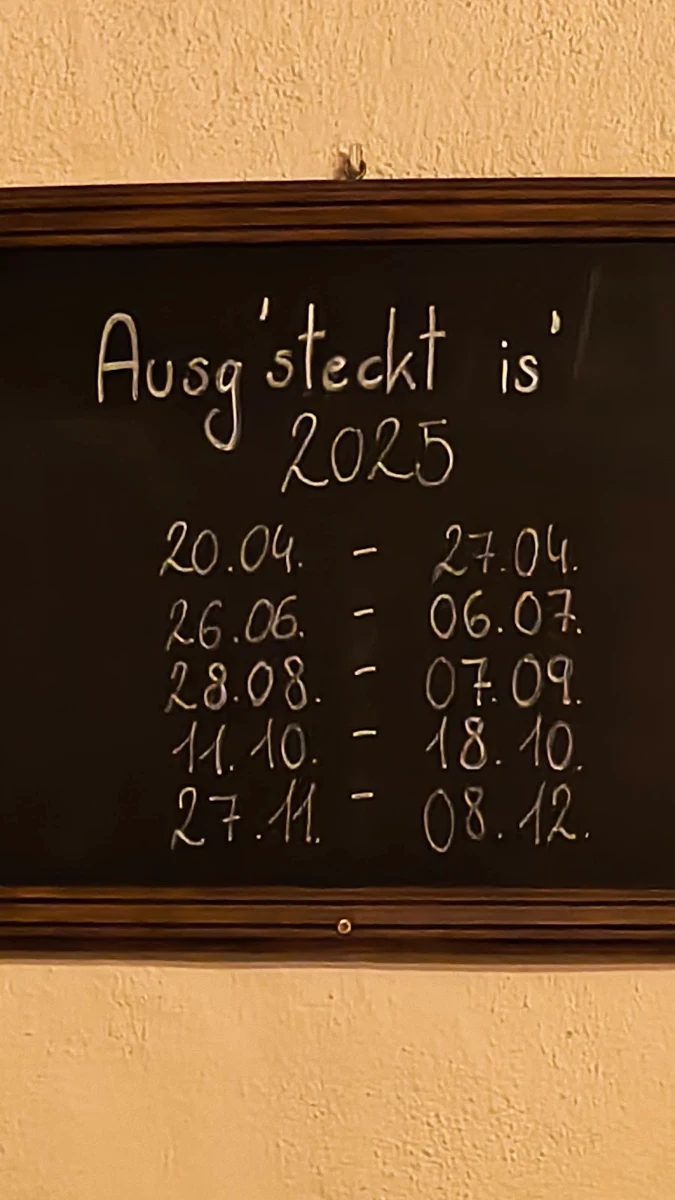 Ausg'steckt is'
2025
20.04. - 27.04.
26.06. - 06.07.
28.08. - 07.09.
11.10. - 18.10.
27.11. - 08.12.